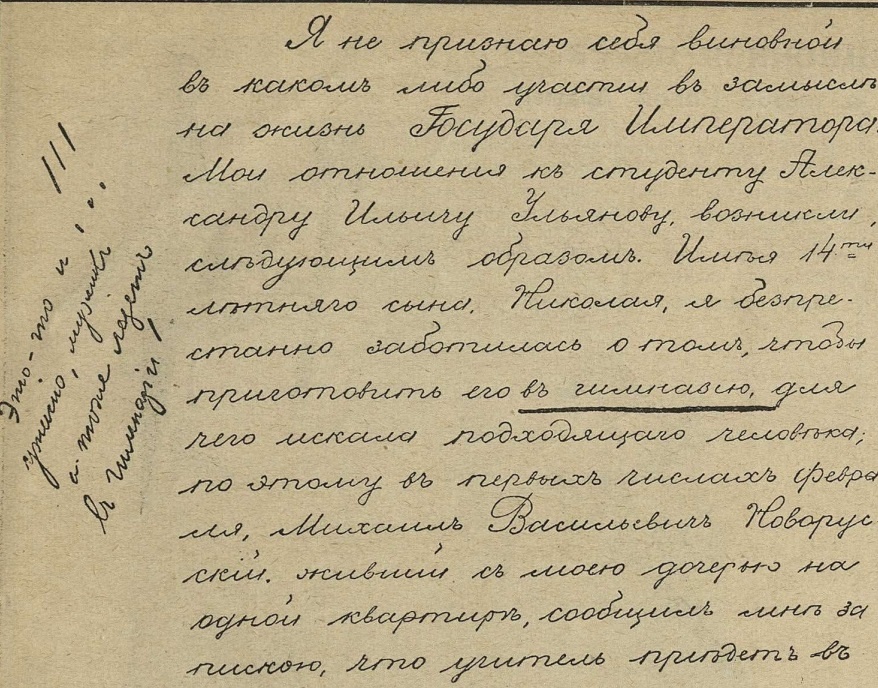 Я не признаю себя виновной
въ какомъ либо участіи въ замыслѣ
на жизнь Государя Императора.
Мои отношенія къ студенту Алек-
сандру Ильичу Ульянову, возникли,
слѣдующимъ образомъ. Имѣя 14ти
лѣтняго сына, Николая, я безпре-
станно заботилась о томъ, чтобы
приготовить его въ гимназію, для
чего искала подходящаго человѣка;
по этому въ первыхъ числахъ февра
ля, Михаилъ Васильевичъ Новорус
скій, живший съ моею дочерью на
одной квартирѣ, сообщилъ мнѣ за
пискою, что учитель пріѣдетъ въ
Это-то и
ужасно, мужикъ
а тоже лѣзетъ
въ гимназіи!